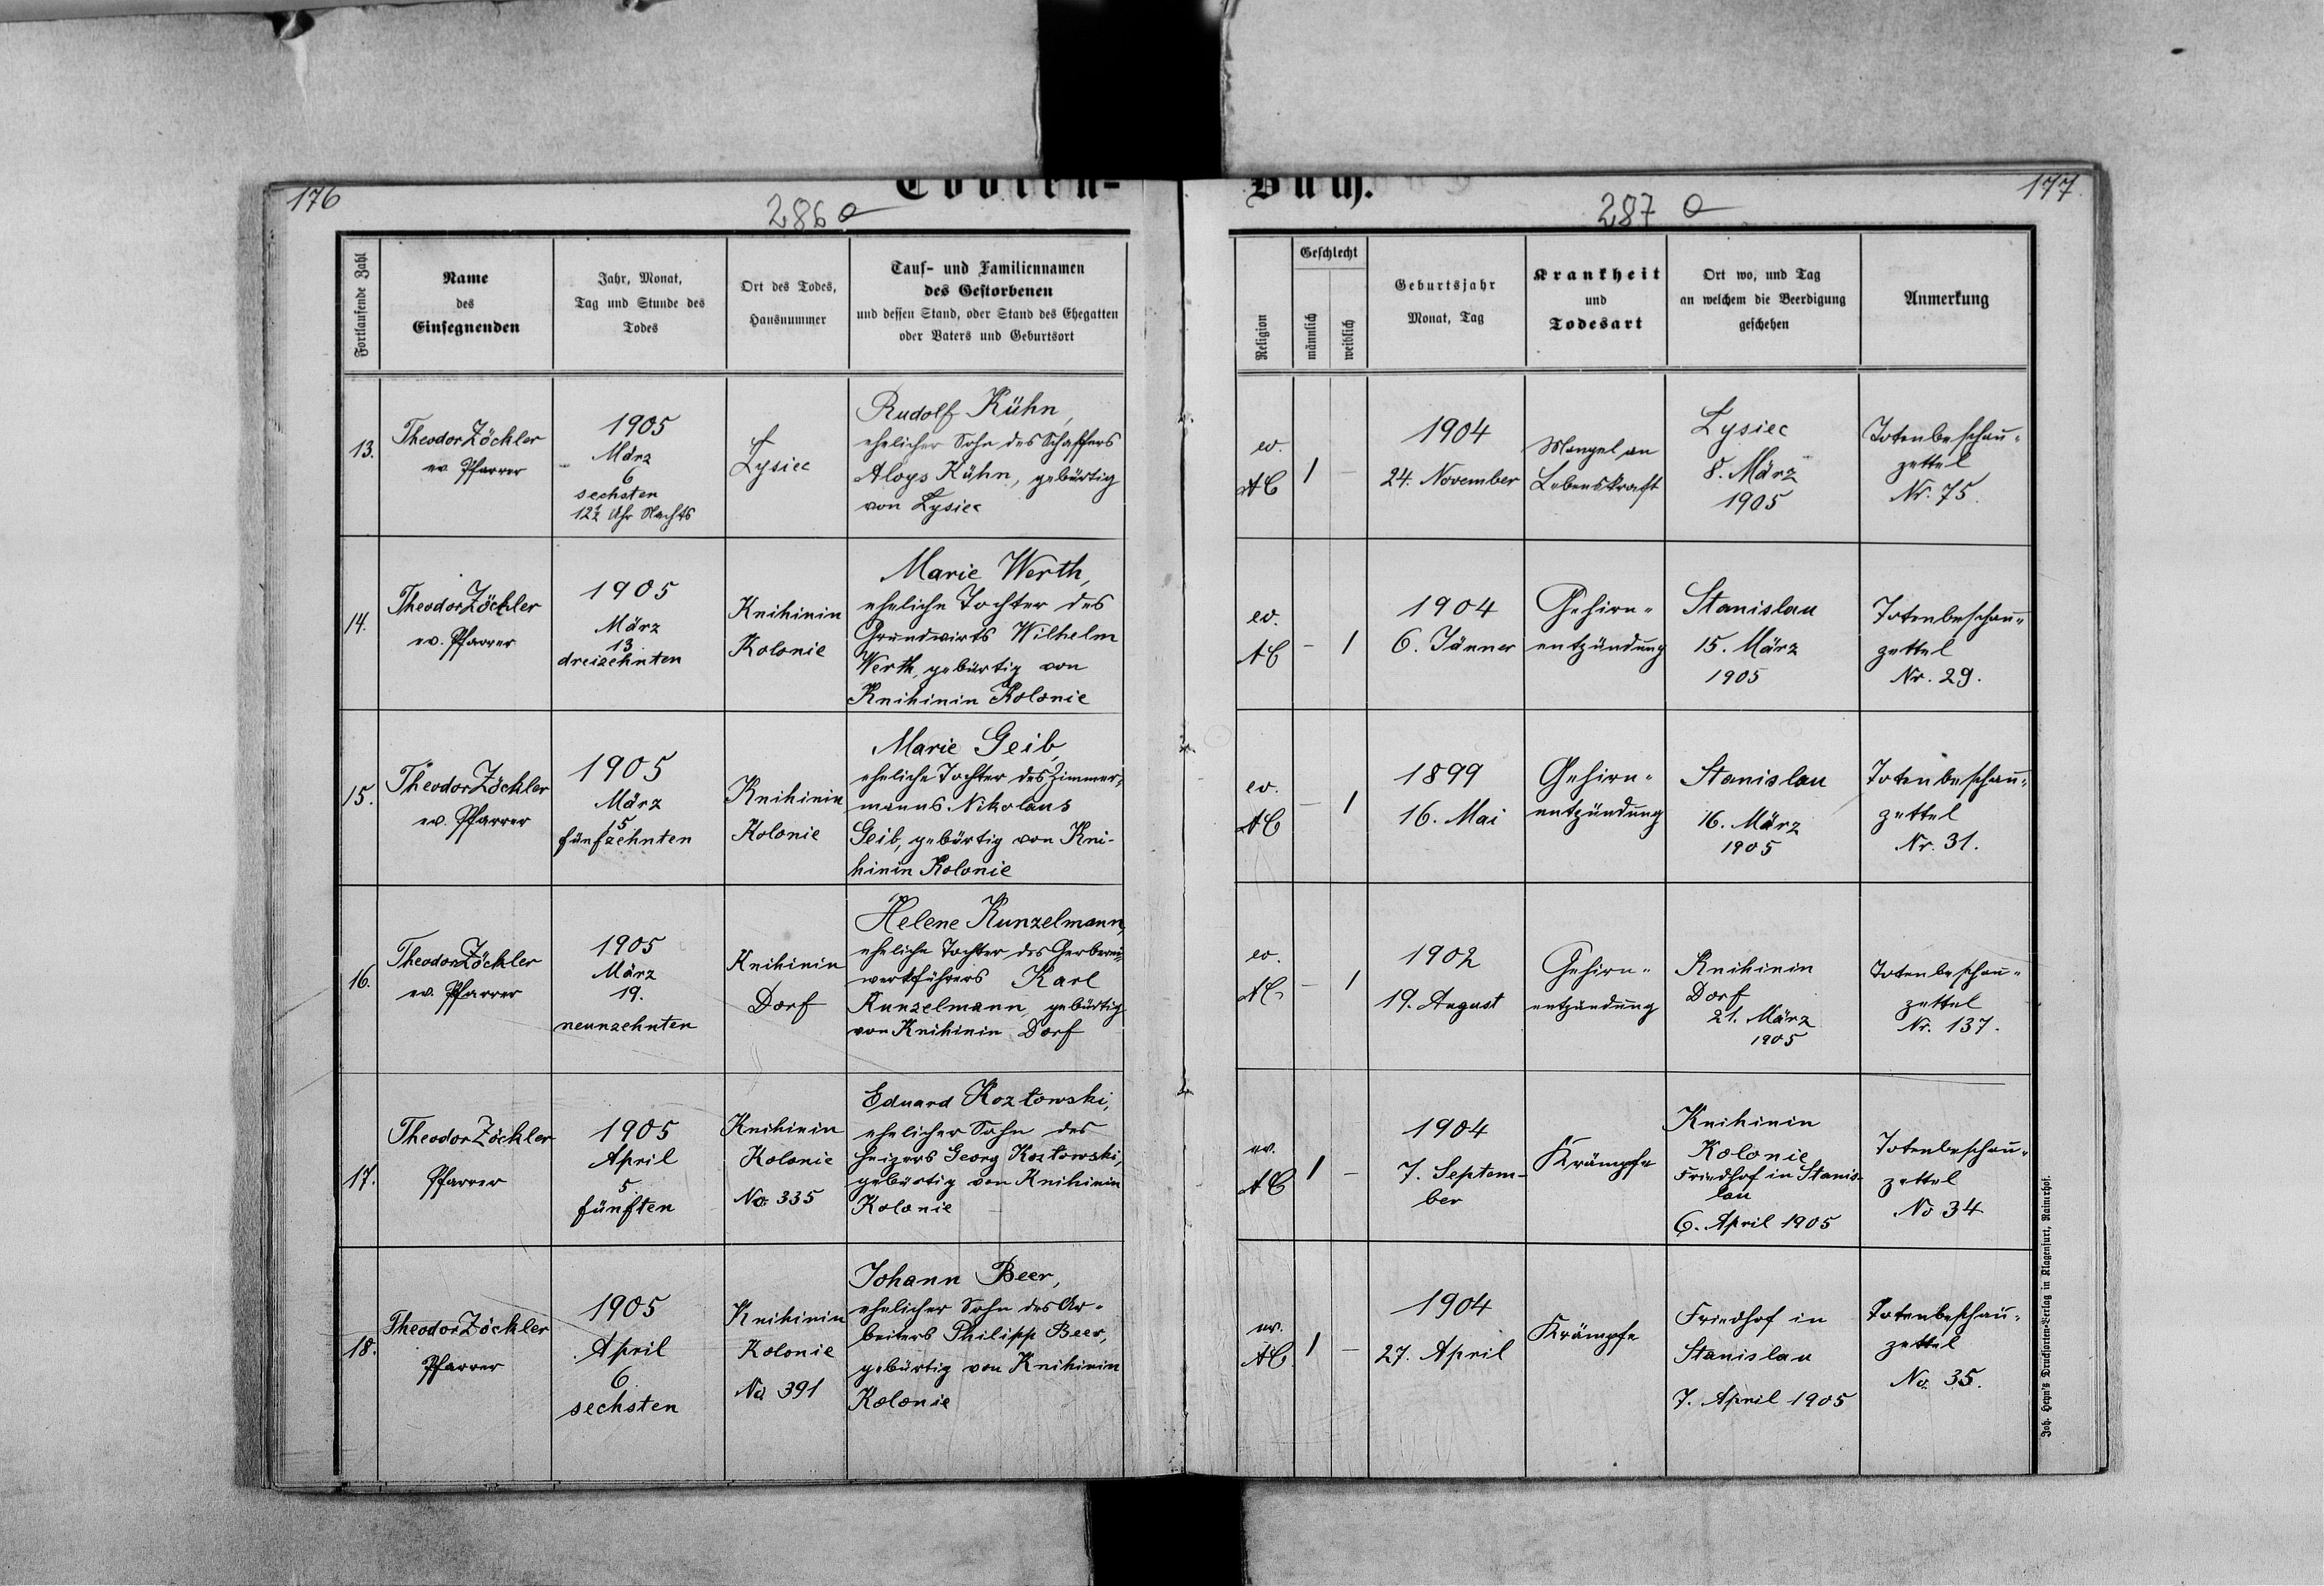 176
Todten-
286 a
Buch.
287 a
177
Fortlaufende Zahl
Name
des
Einsegnenden
Jahr, Monat,
Tag und Stunde des
Todes
Ort des Todes,
Hausnummer
Tauf- und Familiennamen
des Gestorbenen
und dessen Stand, oder Stand des Ehegatten
oder Vaters und Geburtsort
Religion
Geschlecht
männlich
weiblich
Geburtsjahr
Monat, Tag
Krankheit
und
Todesart
Ort wo, und Tag
an welchem die Beerdigung
geschehen
Anmerkung
13.
Theodor Zöckler
ev. Pfarrer
1905
März
6
sechsten
12½ Uhr Nachts
Łysiec
Rudolf Kühn,
ehelicher Sohn des Schaffers
Aloys Kühn, gebürtig
von Łysiec
ev.
AC
1
–
1904
24. November
Mangel an
Lebenskraft
Łysiec
8. März
1905
Totenbeschau-
zettel
Nr. 75.
14.
Theodor Zöckler
ev. Pfarrer
1905
März
13
dreizehnten
Knihinin
Kolonie
Marie Werth,
eheliche Tochter des
Grundwirts Wilhelm
Werth, gebürtig von
Knihinin Kolonie
ev.
AC
–
1
1904
6. Jänner
Gehirn-
entzündung
Stanislau
15. März
1905
Totenbeschau-
zettel
Nr. 29.
15.
Theodor Zöckler
ev. Pfarrer
1905
März
15
fünfzehnten
Knihinin
Kolonie
Marie Geib,
eheliche Tochter des Zimmer-
manns Nikolaus
Geib, gebürtig von Kni-
hinin Kolonie
ev.
AC
–
1
1899
16. Mai
Gehirn-
entzündung
Stanislau
16. März
1905
Totenbeschau-
zettel
Nr. 31.
16.
Theodor Zöckler
ev. Pfarrer
1905
März
19.
neunzehnten
Knihinin
Dorf
Helene Kunzelmann,
eheliche Tochter des Gerberei-
werkführers Karl
Kunzelmann, gebürtig
von Knihinin Dorf
ev.
AC
–
1
1902
19. August
Gehirn-
entzündung
Knihinin
Dorf
21. März
1905
Totenbeschau-
zettel
Nr. 137.
17.
Theodor Zöckler
Pfarrer
1905
April
5
fünften
Knihinin
Kolonie
No. 335
Eduard Kozłowski,
ehelicher Sohn des
Heizers Georg Kozłowski,
gebürtig von Knihinin
Kolonie
ev.
AC
1
–
1904
7. Septem-
ber
Krämpfe
Knihinin
Kolonie
Friedhof in Stanis-
lau
6. April 1905
Totenbeschau-
zettel
No 34
18.
Theodor Zöckler
Pfarrer
1905
April
6
sechsten
Knihinin
Kolonie
No 391
Johann Beer,
ehelicher Sohn des Ar-
beiters Philipp Beer,
gebürtig von Knihinin
Kolonie
ev.
AC.
1
–
1904
27. April
Krämpfe
Friedhof in
Stanislau
7. April 1905
Totenbeschau-
zettel
No. 35.
Joh. Heyn's Drucksorten-Verlag in Klagenfurt, Rainerhof.